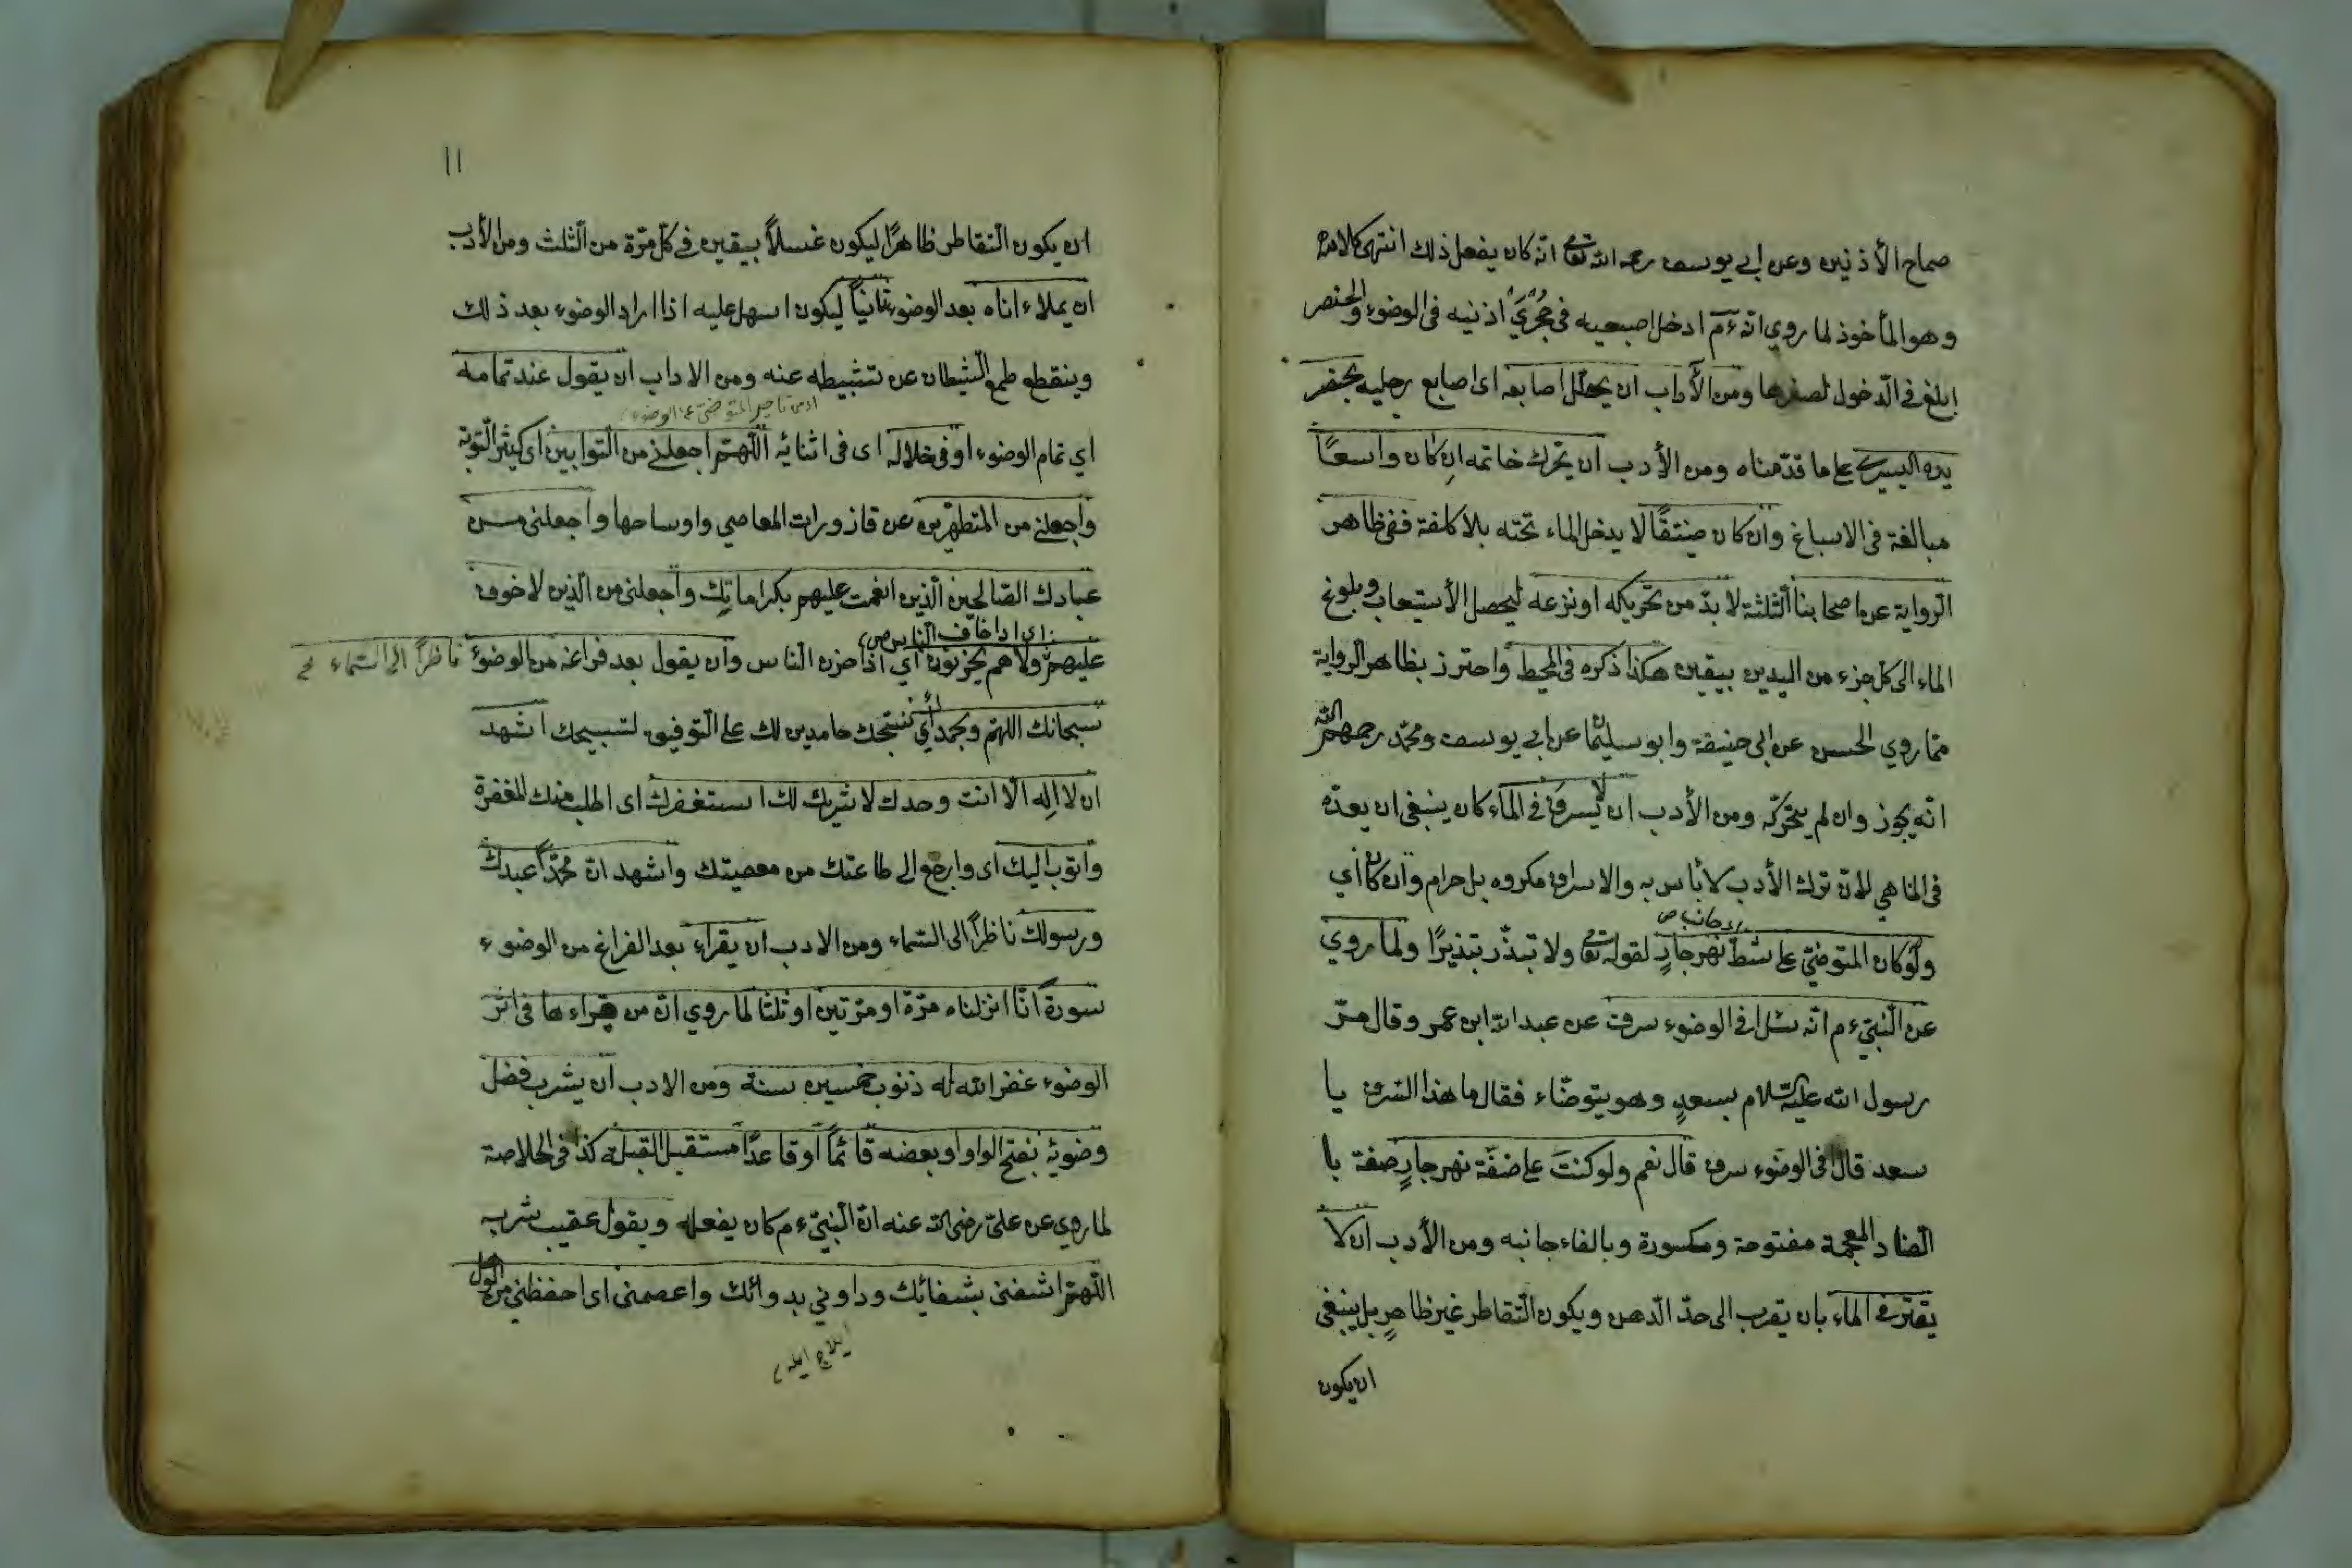 صماخ الأذنين وعن ابي يوسف رحمه الله تعا انّه كان يفعل ذلك انتهى كلامه
وهو المأخوذ لما روي انّه ءم ادخل اصبعيه في حُجْرَيْ اذنيه فى الوضوء والخنصر
ابلغ فى الدّخول لصغرها ومن الأداب ان يخلّل اصابعه اى اصابع رجليه بخنصر
يده اليسرى على ما قدّمناه ومن الأدب ان يحرّك خاتمه اِن كان واسعًا
مبالغة فى الاسباغ وان كان ضيّقًا لا يدخل الماء تحته بلا كلفة ففى ظاهر
الرّواية عن اصحابنا الثّلثة لا بدّ من تحريكه او نزعه ليحصل الأستيعاب وبلوغ
الماء الى كلّ جزء من اليدين بيقين هكذا ذكره فى المحيط واحترز بظاهر الرواية
ممّا روي الحسن عن ابى حنيفة وابو سليمان عن ابي يوسف ومحمّد رحمهم الله
انّه يجوز وان لم يحرّكه ومن الأدب ان لا يسرف في الماء كان ينبغى ان يعدّه
فى المناهي لانّ ترك الأدب لا بأس به والاسراف مكروه بل حرام وان كان أي
اى جانب ص
ولو كان المتوضّئ على شطّ نهر جارٍ لقوله تعا ولا تبذّر تبذيرًا ولما روي
عن النّبيّ ءم انّه سئل افى الوضوء سرف عن عبد الله ابن عمر وقال مرّ
رسول الله عليه السّلام بسعدٍ وهو يتوضّاء فقال ما هذا السّرف يا
سعد قال افى الوضوء سرف قال نعم ولو كنتَ على ضفّة نهر جارٍ ضفة با
الضاد المعجمة مفتوحة ومكسورة وبالفاء جانبه ومن الأدب ان لا
يقتّر فى الماء بان يقرب الى حدّ الدّهن ويكون التّقاطر غير ظاهرٍ بل ينبغى
ان يكون
١١
ان يكون التّقاطر ظاهرًا ليكون غسلاً بيقين فى كلّ مرّة من الثّلث ومن الأدب
ان يملاء اناه بعد الوضوء ثانيًا ليكون اسهل عليه اذا اراد الوضوء بعد ذلك
وينقطع طمع الشيطان عن تثبيطه عنه ومن الاداب ان يقول عند تمامه
اى من تاخير المتوضئ عن الوضوء
اي تمام الوضوء او فى خلاله اى فى اثنائه اللّهمّ اجعلنى من التّوابين اى كثير التّوبة
واجعلني من المتطهّرين عن قاذورات المعاصي واوساخها واجعلنى من
عبادك الصّالحين الّذين انعمت عليهم بكراماتِك واجعلنى من الّذين لا خوف
اى اذا خاف النّاس ص
عليهم ولا هم يحزنون أي اذا حزن النّاس وان يقول بعد فراغه من الوضوء ناظرًا الى السّماء
سبحانك اللهمّ وبحمدك أي نسبّحك حامدين لك على التّوفيق لتسبيحك اشهد
ان لا اِله الّا انت وحدك لا شريك لك استغفرك اى اطلب منك المغفرة
واتوب اليك اى وارجع الى طاعتك من معصيتك واشهد انّ محمّدًا عبدك
ورسولك ناظرًا الى السّماء ومن الادب ان يقراء بعد الفراغ من الوضوء
سورة انّا انزلناه مرّة او مرّتين او ثلثا لما روي انّ من قراءها فى اثر
الوضوء غفر الله له ذنوب خمسين سنة ومن الادب ان يشرب فضل
وضوئه بفتح الواو او بعضه قائمًا او قاعدًا مستقبل القبلة كذا فى الخلاصة
لما روي عن عليّ رضى الله عنه انّ النّبيّ ءم كان يفعله ويقول عقيب شربه
اللّهمّ اشفنى بشفائك وداوني بدوائك واعصمنى اى احفظني من الوهل